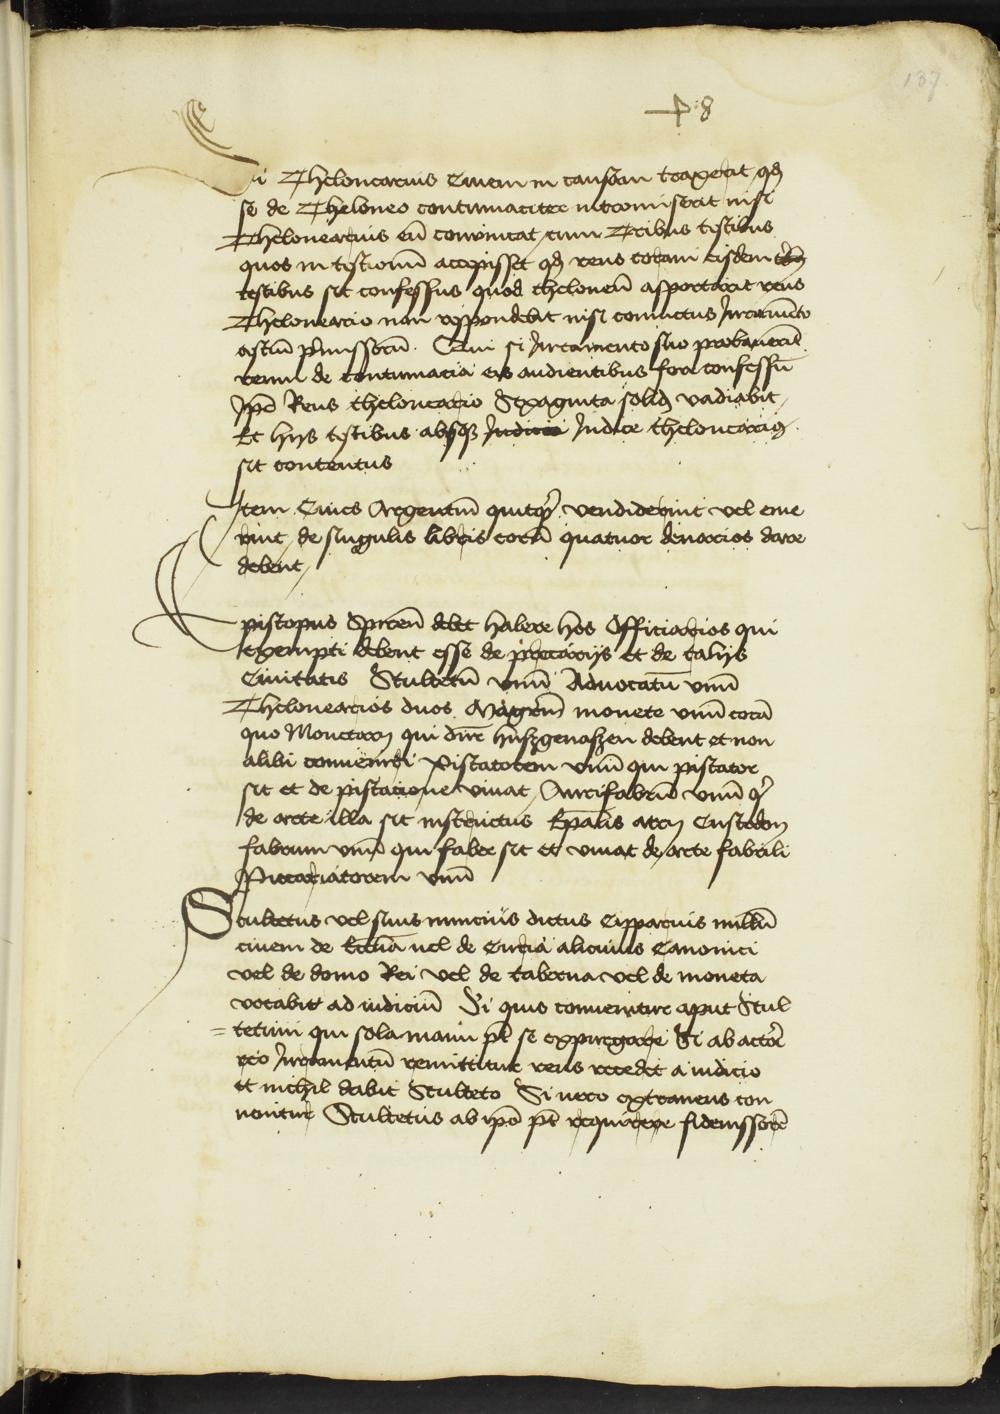 137
+ 8
Si Thelonearius Civem in causam traxerit qd
se de Theloneo contumaciter intromiserit nisi
Thelonearius eū convincat cum Tribus testibus
quos in testimoniū accepisset qd reus coram eisdem
testibus sit confessus quod theloneū asportavit reus
Theloneario non respondebit nisi convictus Juramēto
testiū p̄missorū. Qui si Juramento suo probaverit
reum de contumacia eis audientibus fore confessū
Ipē Reus theloneario Sexaginta solid vadiabit
Et hijs testibus absq̄ Judice thelonearius
sit contentus
Item Cives Argentum quicq̄ vendiderint vel eme
rint, de singulis libris tocā quatuor denarios dare
debent,
Episcopus Spiren̄ debet habere hos Officiarios qui
exempti debent esse de precarijs et de talijs
Civitatis Scultetū vnū Advocatū vnū
Thelonearios duos Magr̄m monete vnū corā
quo Monetarij qui dnr̄ huszgenoszen debent et non
alibi conveniri Pistatorem vnū qui pistator
sit et de pistatione vivat, Aurifabrū vnū q̄
de arte illa sit instructus Ep̄alis Custodem
fabrum vnū qui faber sit et vivat de arte fabrili
vnū
Scultetus vel suus nuncius dictus Cipparius nullū
civem de Ecc̄ia vel de Curia alicuius Canonici
vel de domo Rei vel de taberna vel de moneta
vocabit ad iudiciū Si quis convenitur aput Scul
= tetum qui sola manu pt̄ se expurgare Si ab actōr
reo Juramentū remittitur reus recedet a iudicio
et nichil dabit Sculteto Si vero extraneus con
venitur Scultetus ab ipō pt̄ requirere fideiussorē